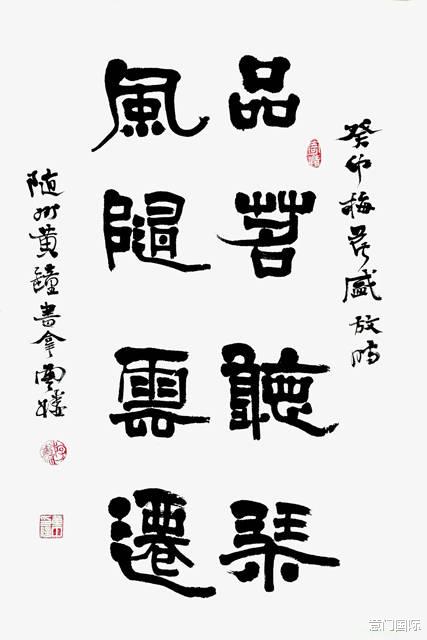 癸卯梅花盛放時
品茗聽琴
風隨雲遷
随州黄鐘書拿樓
门国际